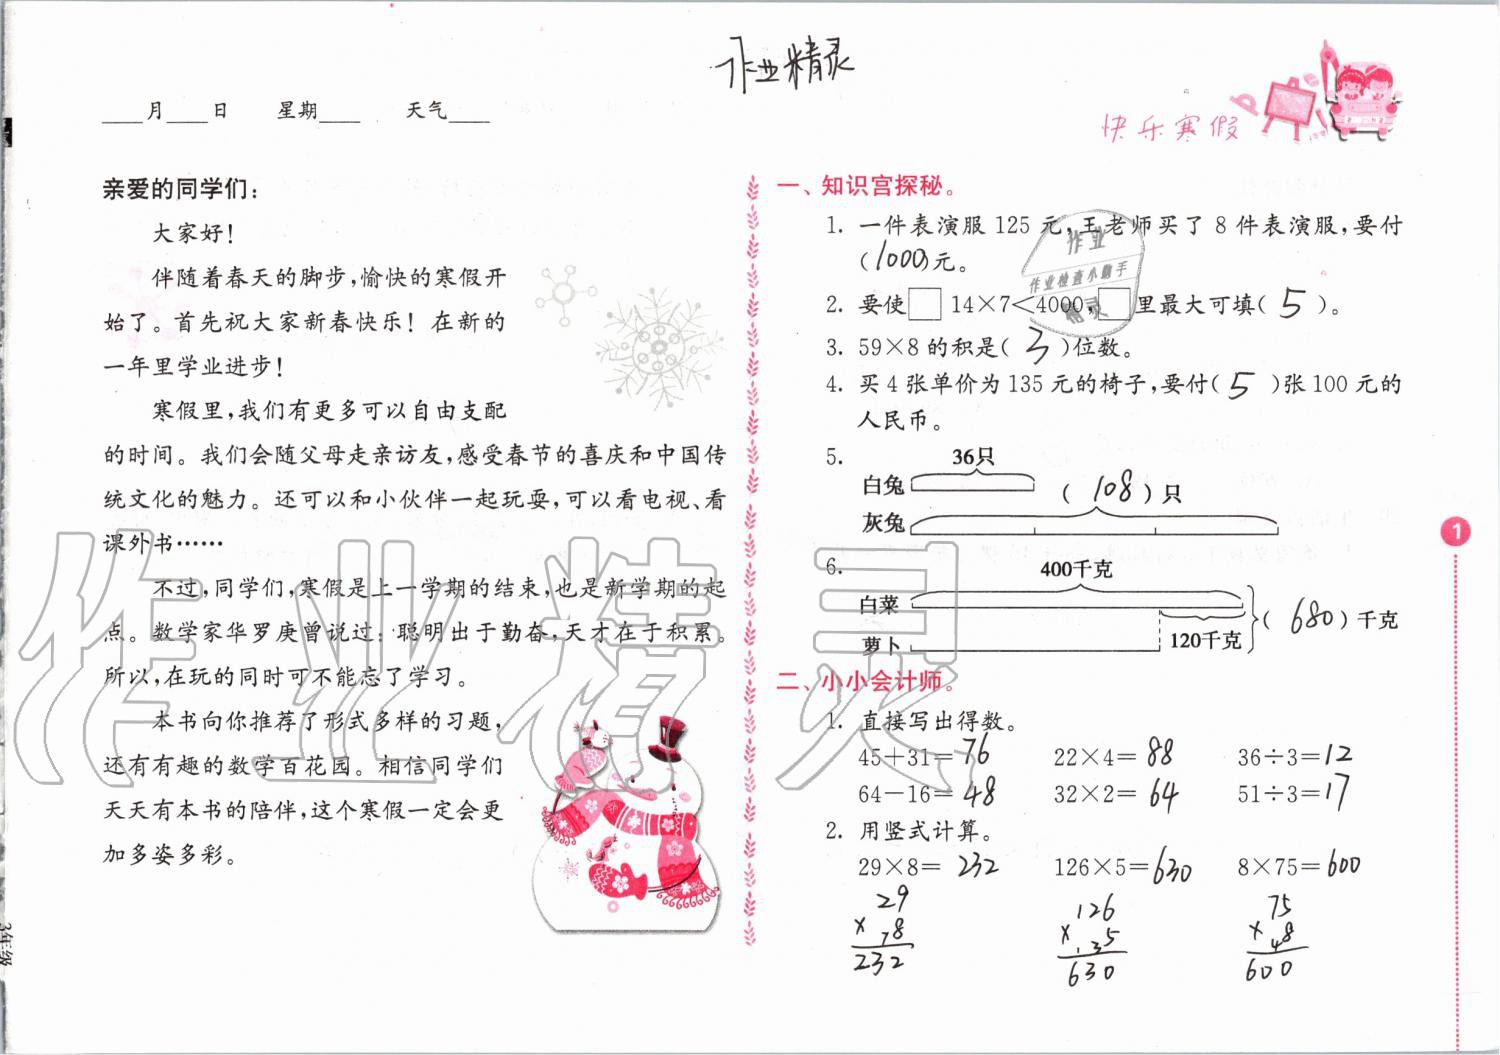 作业精灵
____月____日 星期____ 天气____
快乐寒假
亲爱的同学们：
大家好！
伴随着春天的脚步，愉快的寒假开
始了。首先祝大家新春快乐！在新的
一年里学业进步！
寒假里，我们有更多可以自由支配
的时间。我们会随父母走亲访友，感受春节的喜庆和中国传
统文化的魅力。还可以和小伙伴一起玩耍，可以看电视、看
课外书……
不过，同学们，寒假是上一学期的结束，也是新学期的起
点。数学家华罗庚曾说过：聪明出于勤奋，天才在于积累。
所以，在玩的同时可不能忘了学习。
本书向你推荐了形式多样的习题，
还有有趣的数学百花园。相信同学们
天天有本书的陪伴，这个寒假一定会更
加多姿多彩。
一、知识宫探秘。
1. 一件表演服 125 元，王老师买了 8 件表演服，要付
(1000)元。
2. 要使□14×7＜4000，□里最大可填( 5 )。
3. 59×8 的积是( 3 )位数。
4. 买 4 张单价为 135 元的椅子，要付( 5 )张 100 元的
人民币。
5. 36只
白兔 ( 108 )只
灰兔
6. 400千克
白菜
( 680 )千克
萝卜 120千克
二、小小会计师。
1. 直接写出得数。
45+31=76 22×4=88 36÷3=12
64-16=48 32×2=64 51÷3=17
2. 用竖式计算。
29×8=232 126×5=630 8×75=600
29 126 75
× 78 × 135 × 48
232 630 600
1
作业
作业检查小助手
精灵
作业精灵
3年级